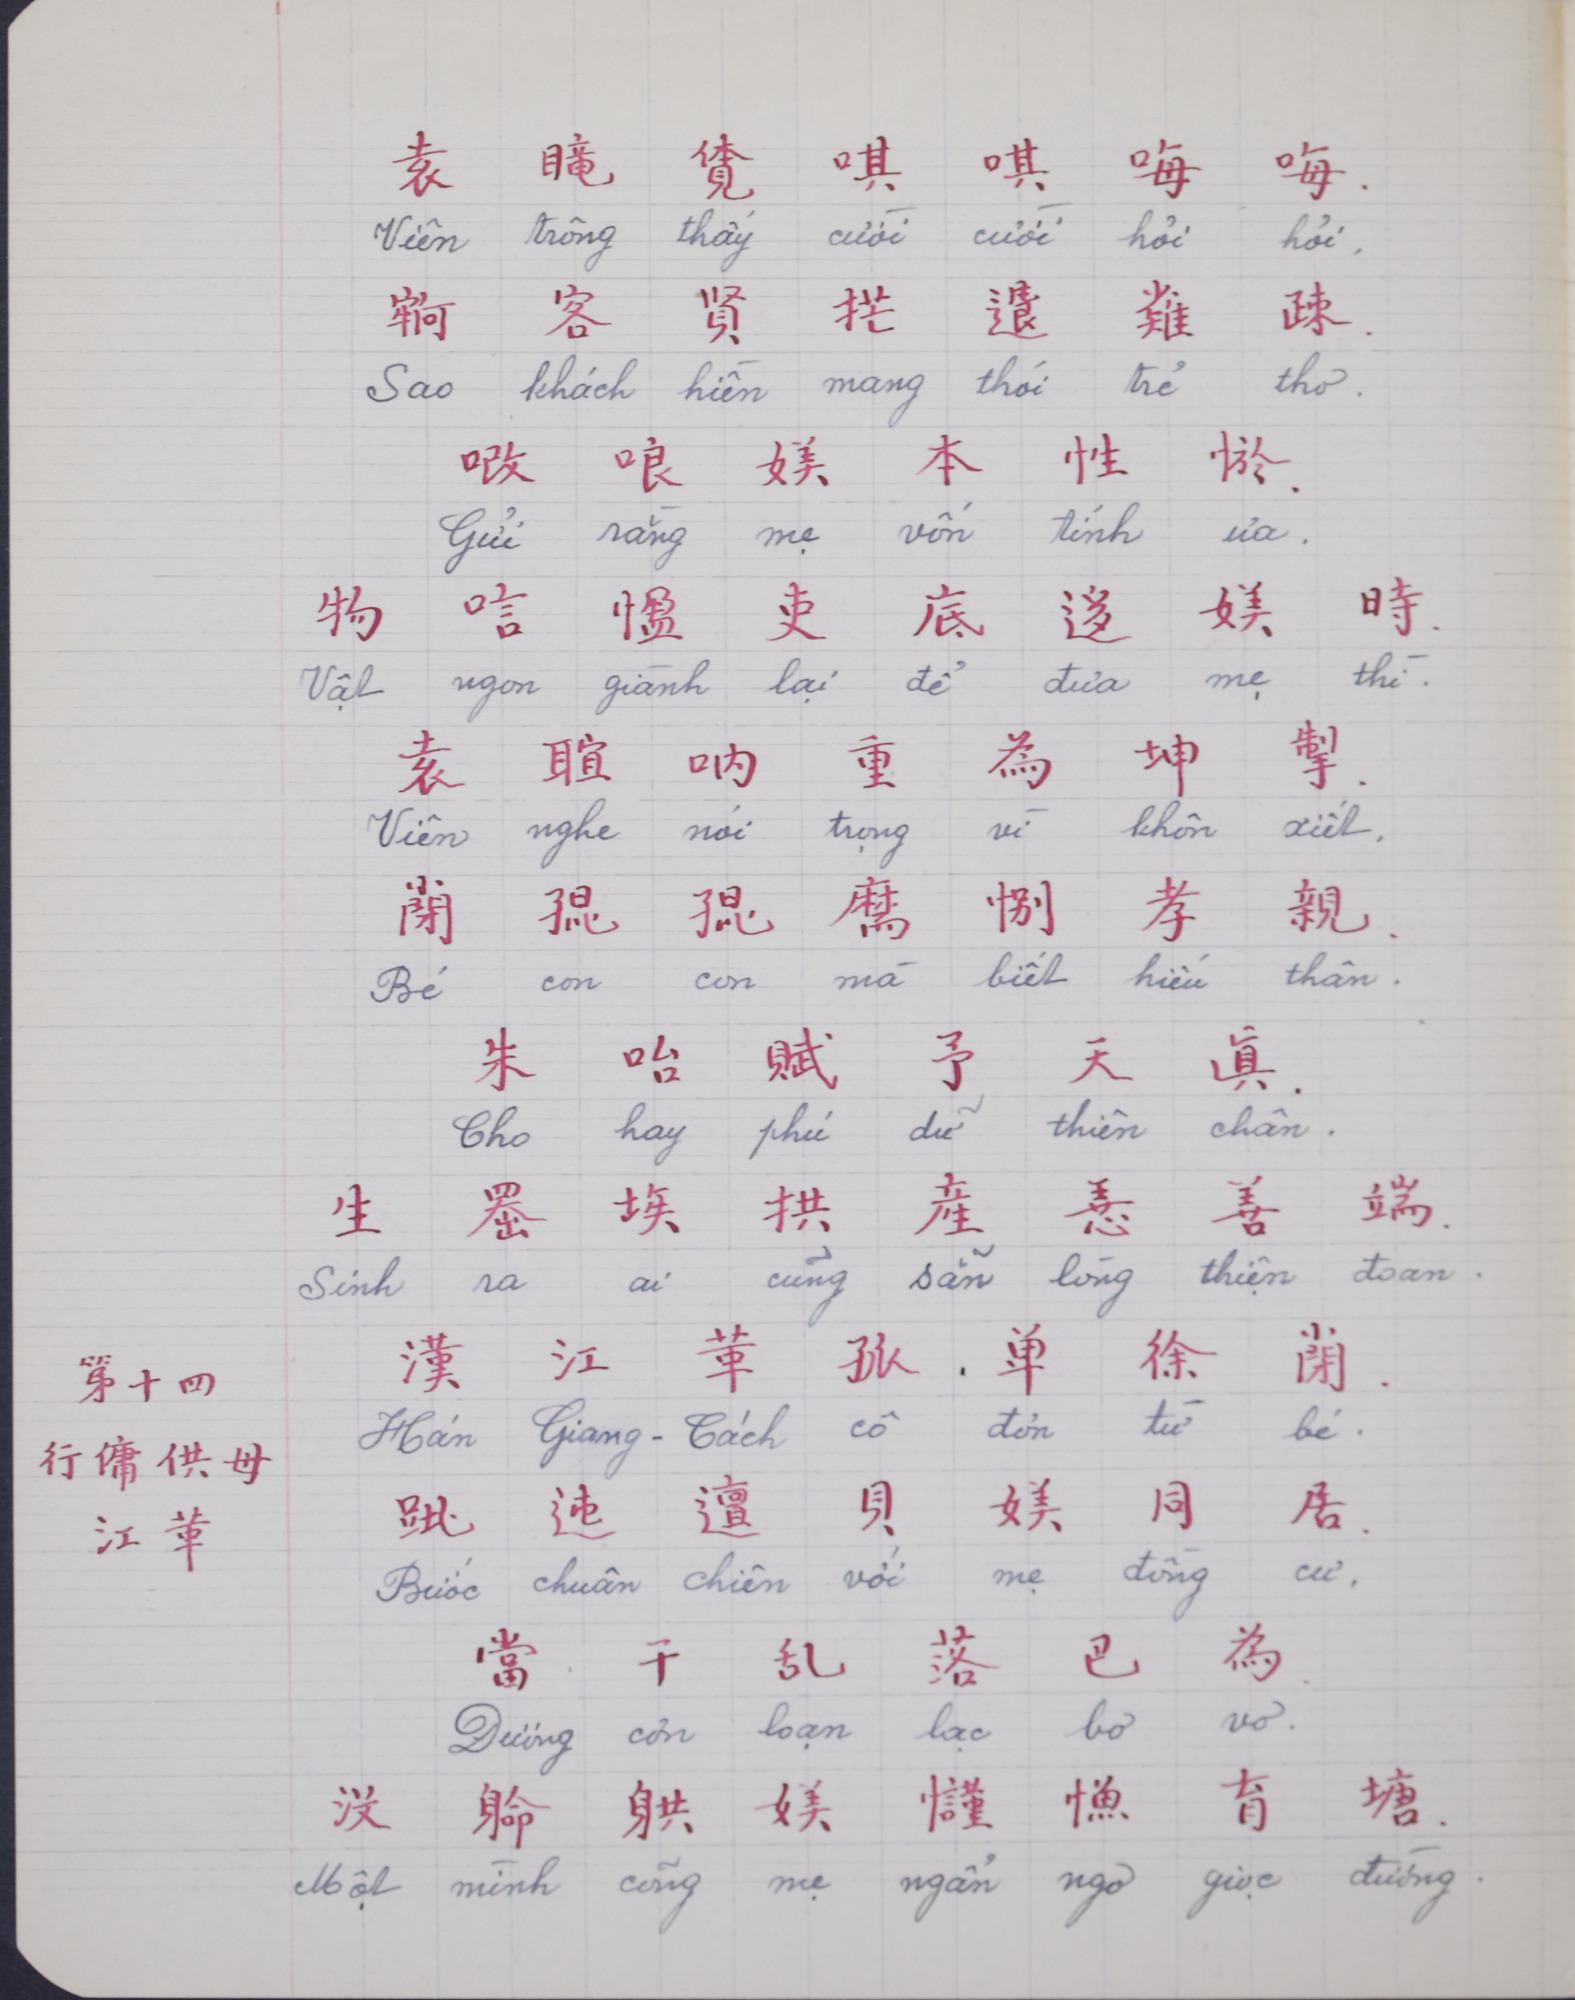 袁 𥊚 覽 唭 唭 𠳨 𠳨.
Viên trông thấy cười cười hỏi hỏi.
客 賢 𢯠 退 疎.
Sao khách hiền mang thói trẻ thơ.
哏 媄 本 性 㤇.
Gửi rằng mẹ vốn tính ưa.
物 唁 愠 吏 底 迻 媄 時.
Vật ngon giành lại để đưa mẹ thì.
袁 𦖻 吶 重 為 坤 掣.
Viên nghe nói trọng vì khôn xiết.
閉 𡥵 𡥵 麽 別 孝 親.
Bé con con mà biết hiếu thân.
朱 咍 賦 予 天 眞.
Cho hay phú dữ thiên chân.
生 𠚢 埃 拱 産 𢚸 善 端.
Sinh ra ai cũng sẵn lòng thiện đoan.
漢 江 革 孤 . 单 徐 閉.
Hán Giang-Cách cô đơn từ bé.
第十四
行傭供母
江革
迍 邅 貝 媄 同 居.
Bước chuân chiên với mẹ đồng cư.
當 干 乱 落 巴 為.
Đương cơn loạn lạc bơ vơ.
没 媄 塘.
Một mình cõng mẹ ngẩn ngơ giọc đường.